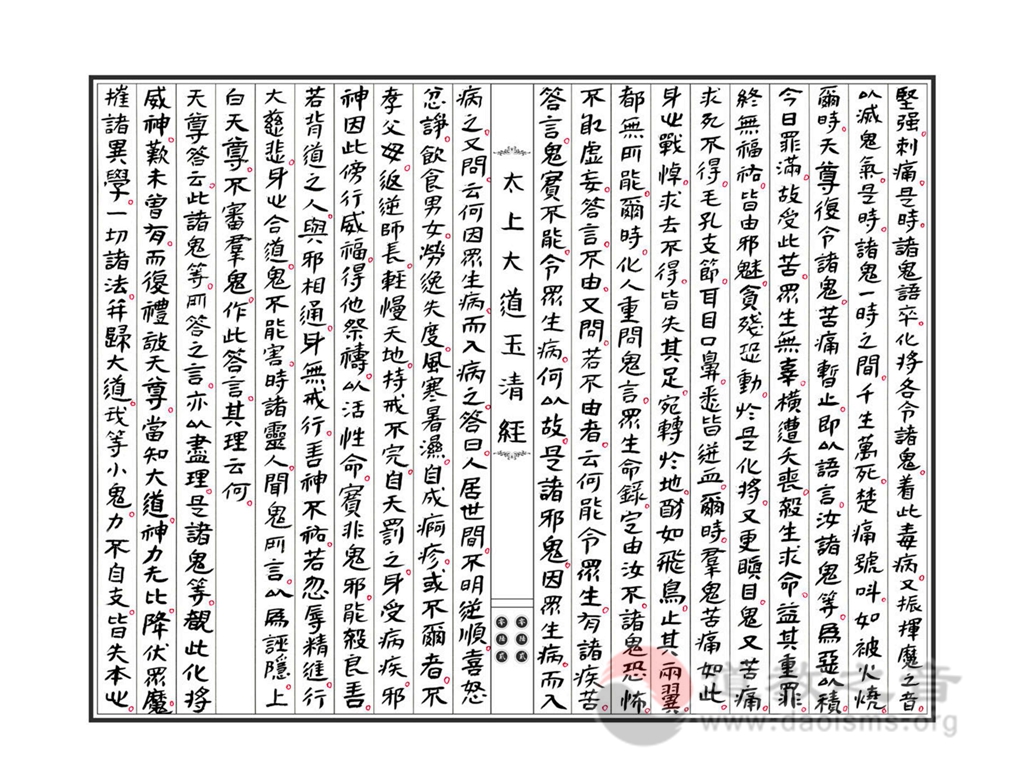 堅强刺痛是時諸鬼語卒化將各令諸鬼着此毒病又振揮魔之音
以滅鬼氣是時諸鬼一時之間千生萬死楚痛號叫如被火燒
爾時天尊復令諸鬼苦痛暫止即以語言汝諸鬼等爲惡以積
今日罪滿故受此苦眾生無辜橫遭夭喪殺生求命益其重罪
終無福祐皆由邪魅貪殘恐動於是化將又更瞋目鬼又苦痛
求死不得毛孔支節耳目口鼻悉皆迸血爾時羣鬼苦痛如此
身心戰悼求去不得皆失其足宛轉於地酧如飛鳥止其兩翼
都無所能爾時化人重問鬼言眾生命錄定由汝不諸鬼恐怖
不敢虛妄答言不由又問若不由者云何能令眾生有諸疾苦
答言鬼實不能令眾生病何以故是諸邪鬼因眾生病而入
太上大道玉清經
零陸貳
零陸貳
病之又問云何因眾生病而入病之答曰人居世間不明逆順喜怒
忿諍飲食男女勞逸失度風寒暑濕自成痾疹或不爾者不
孝父母返逆師長輕慢天地持戒不完自天罰之身受病疾邪
神因此傍行威福得他祭禱以活性命實非鬼邪能殺良善
若背道之人與邪相通身無戒行善神不祐若忍辱精進行
大慈悲身心合道鬼不能害時諸靈人聞鬼所言以爲誣隱上
白天尊不審羣鬼作此答言其理云何
天尊答云此諸鬼等所答之言亦以盡理是諸鬼等觀此化將
威神歎未曾有而復禮敬天尊當知大道神力无比降伏眾魔
摧諸異學一切諸法并歸大道我等小鬼力不自支皆失本心
道教之音
www.daoisms.org